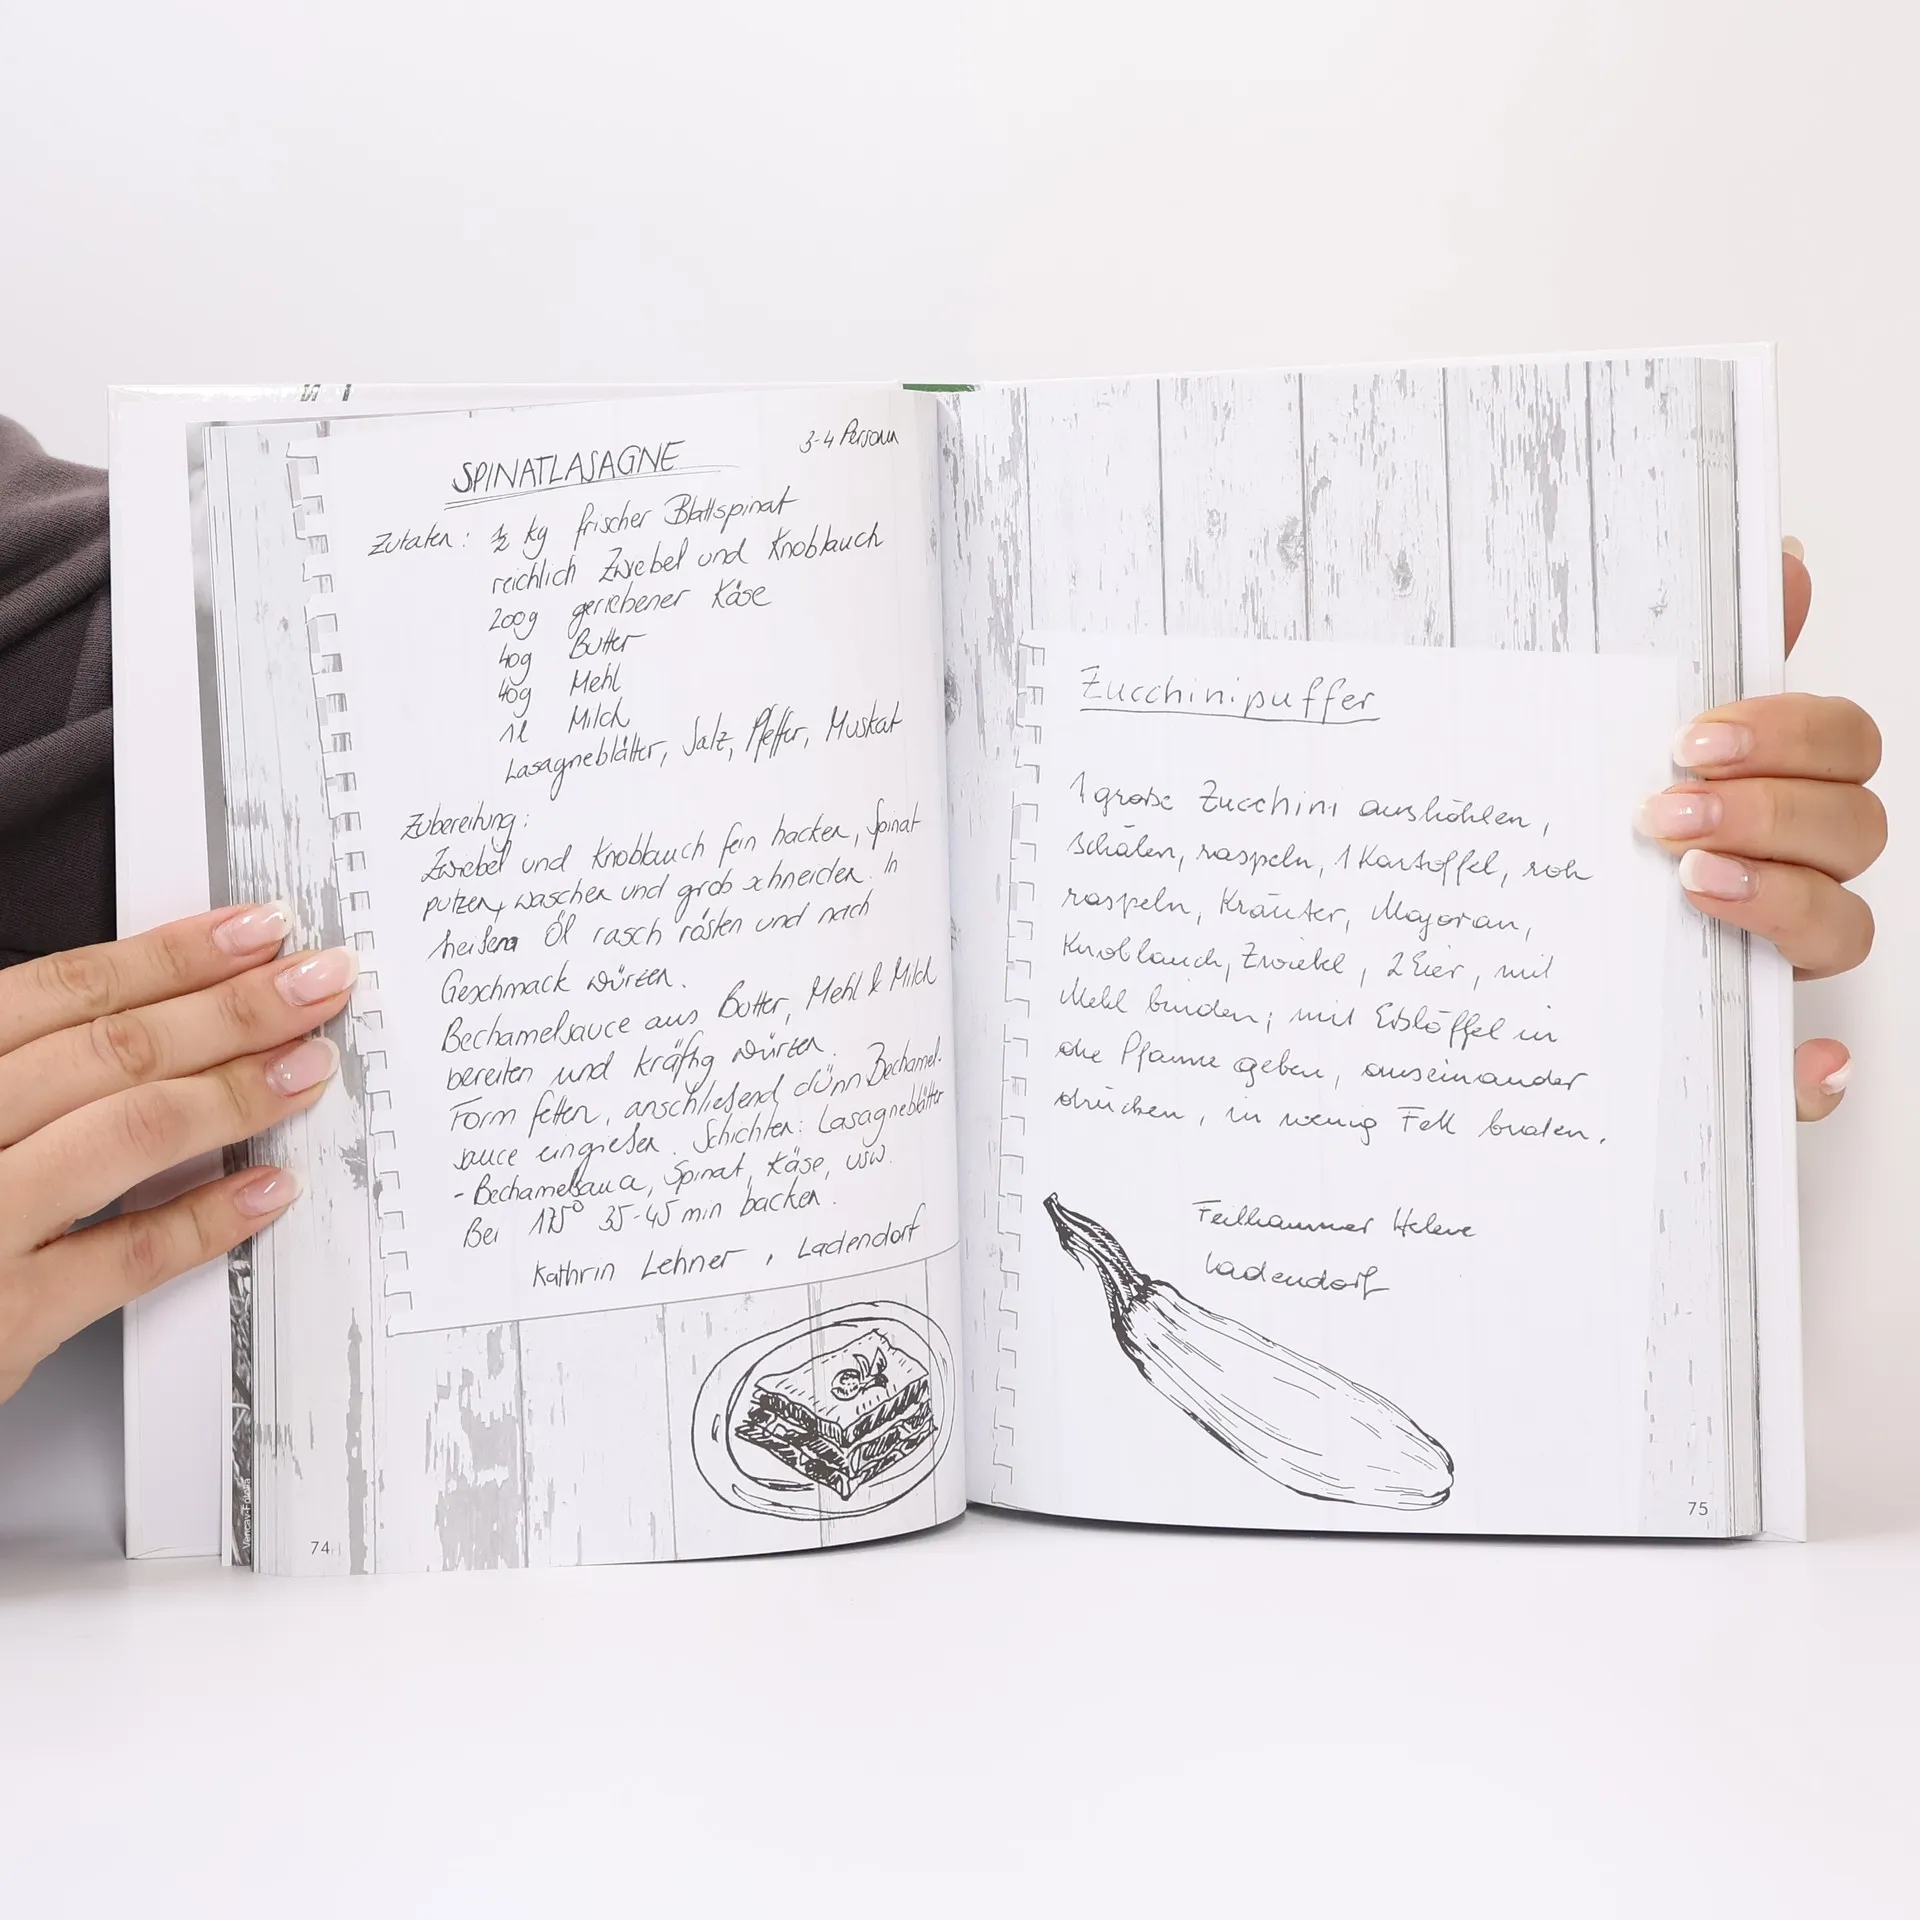 SPINATLASAGNE
3-4 Personen
Zutaten: ½ kg frischer Blattspinat
reichlich Zwiebel und Knoblauch
200g geriebener Käse
40g Butter
40g Mehl
1l Milch
Lasagneblätter, Salz, Pfeffer, Muskat
Zubereitung:
Zwiebel und Knoblauch fein hacken, Spinat
putzen, waschen und grob schneiden. In
heißem Öl rasch rösten und nach
Geschmack würzen.
Bechamelsauce aus Butter, Mehl & Milch
bereiten und kräftig würzen.
Form fetten, anschließend dünn Bechamel-
sauce eingießen. Schichten: Lasagneblätter
- Bechamelsauce, Spinat, Käse, usw.
Bei 175° 35-45 min backen.
Kathrin Lehner, Ladendorf
74
Zucchinipuffer
1 große Zucchini aushöhlen,
schälen, raspeln, 1 Kartoffel, roh
raspeln, Kräuter, Majoran,
Knoblauch, Zwiebel, 2 Eier, mit
Mehl binden; mit Eßlöffel in
die Pfanne geben, auseinander
drücken, in wenig Fett braten.
Feilhammer Helene
Ladendorf
75